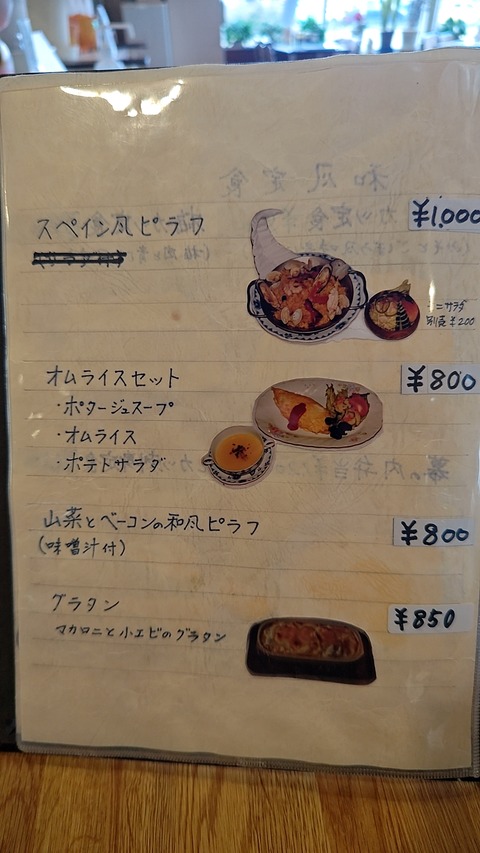 スペイン風ピラフ ¥1,000
ニサラダ
別売 ¥200
オムライスセット ¥800
・ポタージュスープ
・オムライス
・ポテトサラダ
山菜とベーコンの和風ピラフ ¥800
(味噌汁付)
グラタン ¥850
マカロニと小エビのグラタン